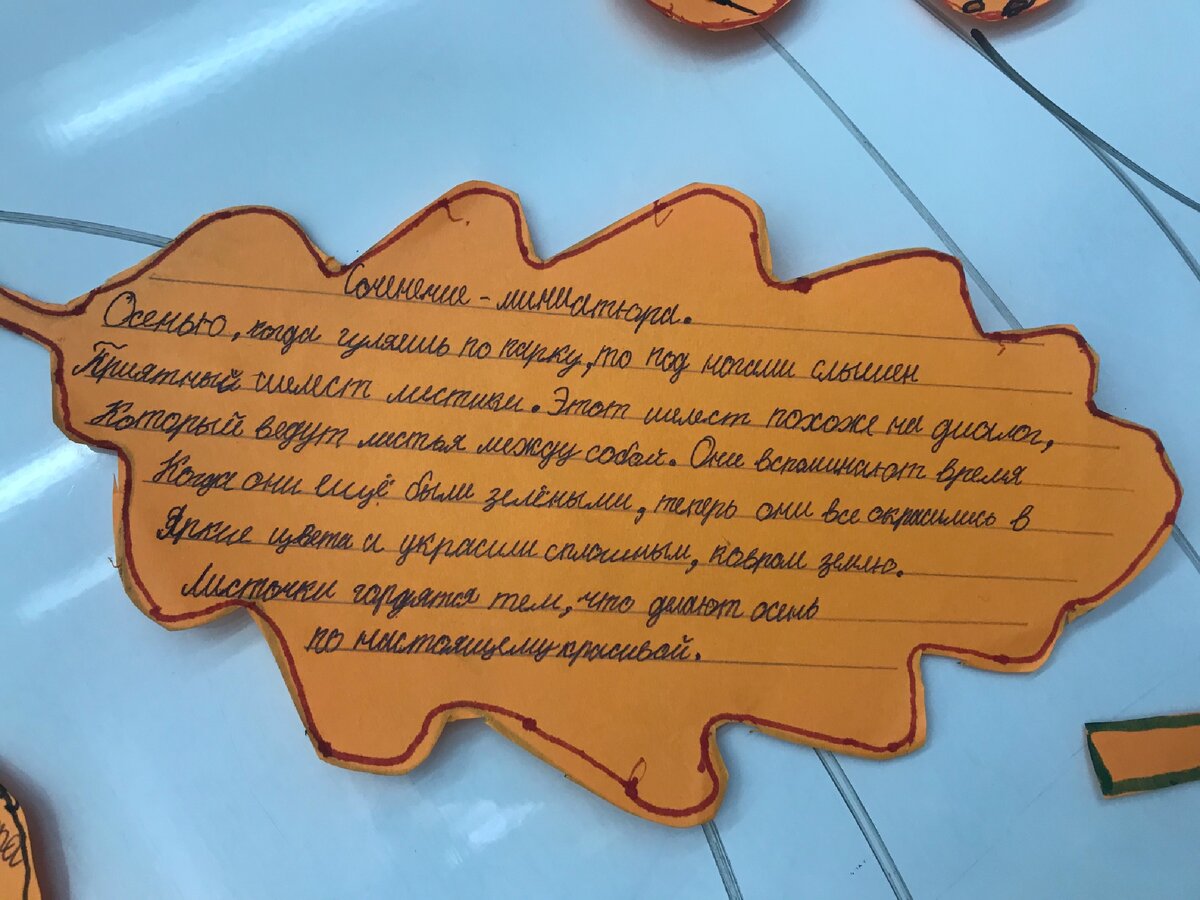 Сочинение - миниатюра.
Осенью, когда гуляешь по парку, то под ногами слышен
Приятный шелест листики. Этот шелест похоже на диалог,
Который ведут листья между собой. Они вспоминают время
Когда они ещё были зелёными, теперь они все окрасились в
Яркие цвета и украсили сплошным, ковром землю.
Листочки гордятся тем, что делают осень
по настоящему красивой.